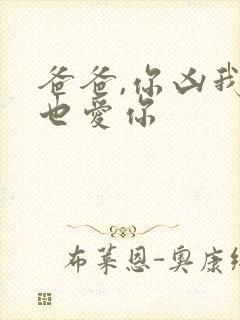 爸爸,你凶我
也爱你
布莱恩-奥康纳